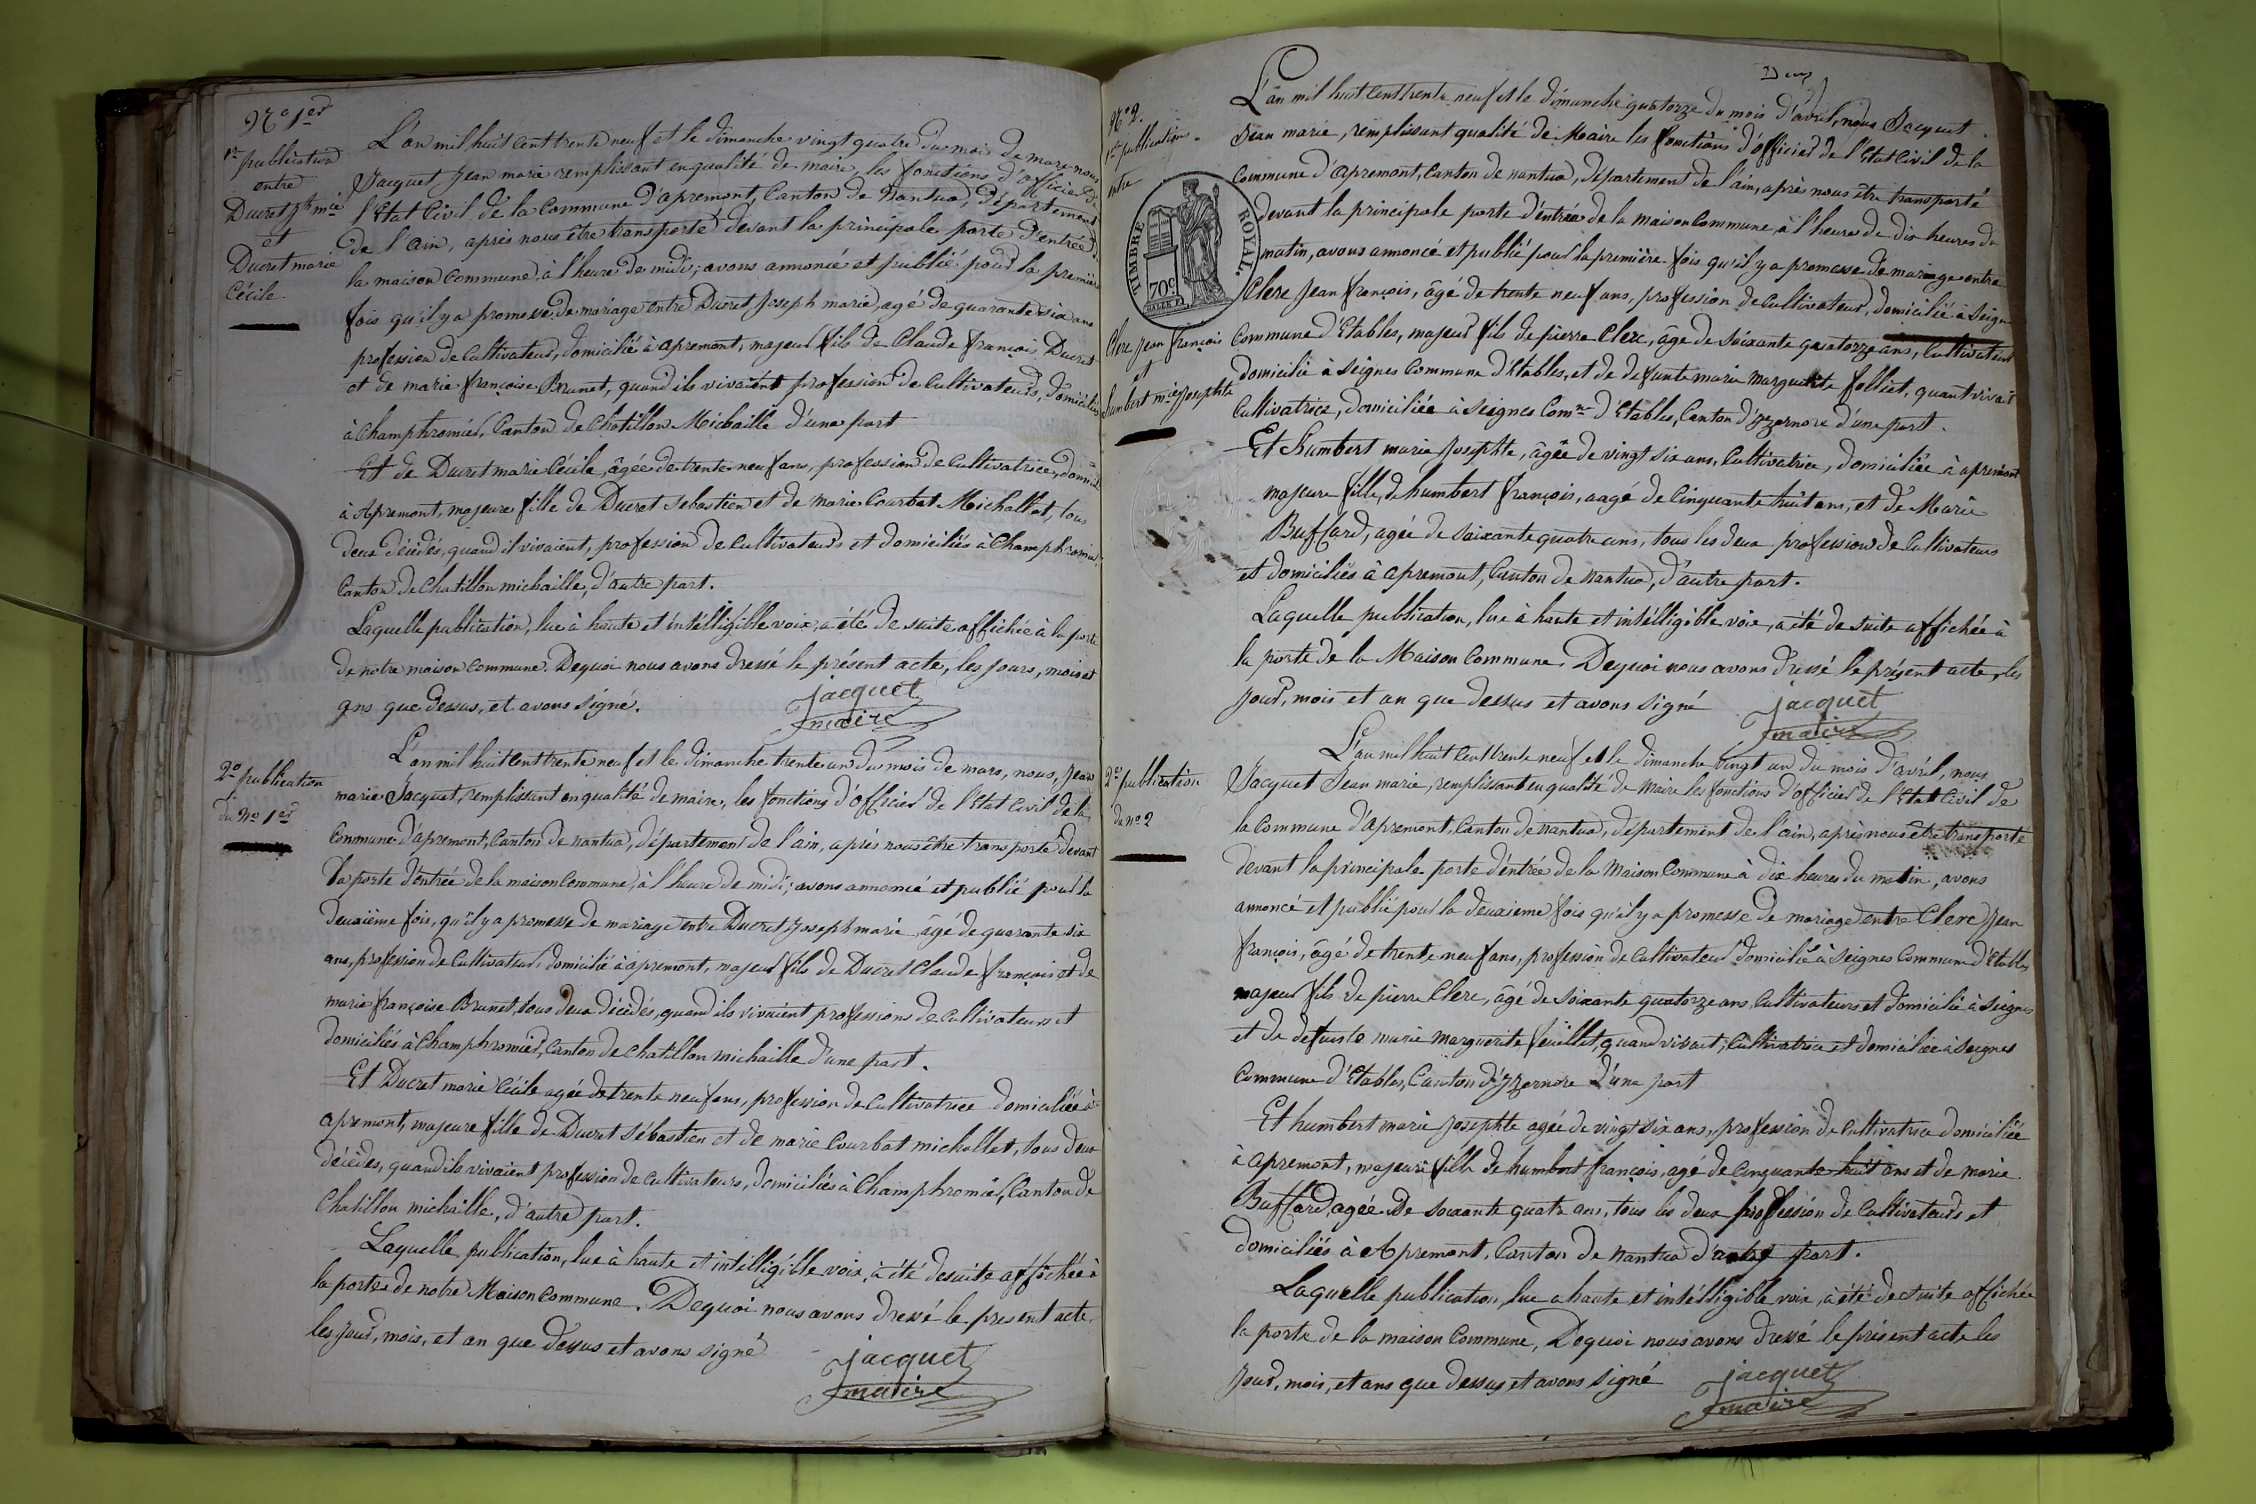 N.o 1er
1re publication
entre
Ducret jh mie
et
Ducret marie
Cécile
L'an mil huit cent trente neuf et le dimanche vingt quatre du mois de mars nous
Jacquet Jean marie remplissant en qualité de maire, les fonctions d'officier de
l'Etat Civil de la Commune d'apremont, Canton de Nantua, département
de l'ain, après nous être transporté devant la principale porte d'entrée de
la maison Commune, à l'heure de midi; avons annoncé et publié pour la première
fois qu'il y a promesse de mariage entre Ducret Joseph marie, agé de quarante six ans
profession de Cultivateur, domicilié à apremont, majeur fils de Claude françois Ducret
et de marie françoise Brunet, quand ils vivaient profession de Cultivateurs, domiciliés
à Champfromier, Canton de Chatillon Michaille d'une part
Et de Ducret marie Cécile, âgée de trente neuf ans, profession de Cultivatrice, domicilié
à Apremont, majeure fille de Ducret Sebastien et de Marie Courbat Michallet, tous
deux décédés, quand il vivaient, profession de Cultivateurs et domiciliés à Champfromier,
Canton de Chatillon michaille, d'autre part.
Laquelle publication, lue à haute et intélligible voix, a été de suite affichée à la porte
de notre maison Commune. Dequoi nous avons dressé le présent acte, les jours, mois et
ans que dessus, et avons signé.
jacquet
maire
2e publication
du No 1er
L'an mil huit cent trente neuf et le dimanche trente un du mois de mars, nous, Jean
marie Jacquet, remplissant en qualité de maire, les fonctions d'officier de l'Etat Civil de la
Commune d'apremont, Canton de nantua, département de l'ain, après nous être transporté devant
la porte d'entrée de la maison Commune, à l'heure de midi; avons annoncé et publié pour la
deuxième fois, qu'il y a promesse de mariage entre Ducret Joseph marie âgé de quarante six
ans, profession de Cultivateur, domicilié à apremont, majeur fils de Ducret Claude françois et de
marie françoise Brunet, tous deux décédés, quand ils vivaient professions de Cultivateurs et
domiciliés à Champfromier, Canton de Chatillon michaille d'une part.
Et Ducret marie Cécile agée de trente neuf ans, profession de Cultivatrice domiciliée à
apremont, majeure fille de Ducret Sébastien et de marie Courbat michallet, tous deux
décédés, quand ils vivaient profession de Cultivateurs, domiciliés à Champfromier, Canton de
Chatillon michaille, d'autre part.
Laquelle publication, lue à haute et intélligible voix, a été de suite affichée à
la porte de notre Maison Commune. Dequoi nous avons dressé le présent acte,
les jour, mois, et an que dessus et avons signé
jacquet
maire
Deux
N.o 2.
1re publication
entre
TIMBRE ROYAL.
70c
Clerc Jean françois
et
humbert mie Josephte
L'an mil huit cent trente neuf et le dimanche quatorze du mois d'avril, nous Jacquet
Jean marie, remplissant qualité de Maire les fonctions d'officier de l'Etat Civil de la
Commune d'apremont, Canton de nantua, département de l'ain, après nous être transporté
devant la principale porte d'entrée de la maison Commune, à l'heure de dix heures du
matin, avons annoncé et publié pour la première fois qu'il y a promesse de mariage entre
Clerc Jean françois, âgé de trente neuf ans, profession de Cultivateur, domicilié à Seigne
Commune d'Etables, majeur fils de pierre Clerc, âge de Soixante quatorze ans, Cultivateur
domicilié à Seignes Commune d'Etables, et de defunte marie Marguerite folliet, quant vivait
Cultivatrice, domiciliée à Seignes Comne d'Etables, Canton d'yzernore d'une part.
Et humbert marie Josephte, âgée de vingt six ans, Cultivatrice, domiciliée à apremont
majeure fille de humbert françois, aagé de Cinquante huit ans, et de Marie
Buffard, agée de Soixante quatre ans, tous les deux profession de Cultivateurs
et domiciliés à apremont, Canton de nantua, d'autre part.
Laquelle publication, lue à haute et intélligible voie, a été de suite affichée à
la porte de la Maison Commune. Dequoi nous avons dressé le présent acte, les
jour, mois et an que dessus et avons signé
jacquet
maire
2e publication
du no 2
L'an mil huit cent trente neuf et le dimanche vingt un du mois d'avril, nous
Jacquet Jean marie, remplissant en qualité de Maire les fonctions d'officier de l'Etat Civil de
la Commune d'apremont, Canton de nantua, département de l'ain, après nous être transporté
devant la principale porte d'entrée de la Maison Commune à dix heures du matin, avons
annoncé et publié pour la deuxieme fois qu'il y a promesse de mariage entre Clerc Jean
françois, âgé de trente neuf ans, profession de Cultivateur domicilié à Seignes Commune d'Etables
majeur fils de pierre Clerc, âgé de Soixante quatorze ans Cultivateurs et domicilié à Seignes
et de defunte marie Marguerite feuillet, quand vivait, Cultivatrice et domiciliée à Seignes
Commune d'Etables, Canton d'yzernore d'une part
Et humbert marie Josephte agée de vingt six ans, profession de Cultivatrice domiciliée
à apremont, majeure fille de humbert françois, agé de Cinquante huit ans et de marie
Buffard, agée de soixante quatre ans, tous les deux profession de Cultivateurs et
domiciliés à Apremont, Canton de nantua d'autre part.
Laquelle publication, lue a haute et intélligible voix, à été de Suite affichée
la porte de la maison Commune, Dequoi nous avons dressé le présent acte les
jour, mois, et ans que dessus et avons signé
jacquet
maire